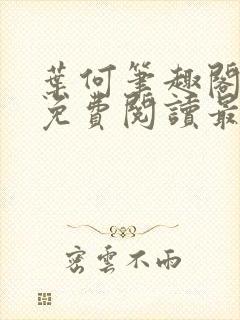 葉何筆趣閣
免費閱讀最
密雲不雨